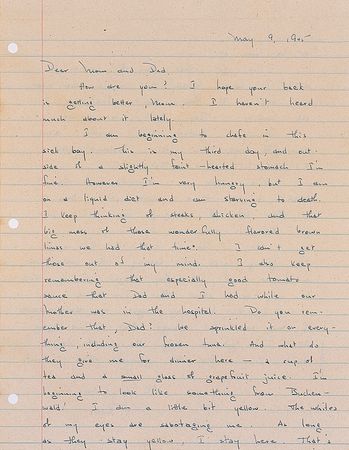 May 9, 1945
Dear Mom and Dad,
How are you? I hope your back
is getting better, Mom. I haven't heard
much about it lately.
I am beginning to chafe in this
sick bay. This is my third day, and out-
side of a slightly faint-hearted stomach I'm
fine. However I'm very hungry, but I am
on a liquid diet and am starving to death.
I keep thinking of steaks, chicken and that
big mess of those wonderfully flavored brown
limas we had that time. I can't get
those out of my mind. I also keep
remembering that especially good tomato
sauce that Dad and I had while our
mother was in the hospital. Do you rem-
ember that, Dad? We sprinkled it on every-
thing, including our frozen tuna. And what do
they give me for dinner here — a cup of
tea and a small glass of grapefruit juice. I'm
beginning to look like something from Buchen-
wald! I am a little bit yellow. The whites
of my eyes are sabotaging me. As long
as they stay yellow, I stay here. That's